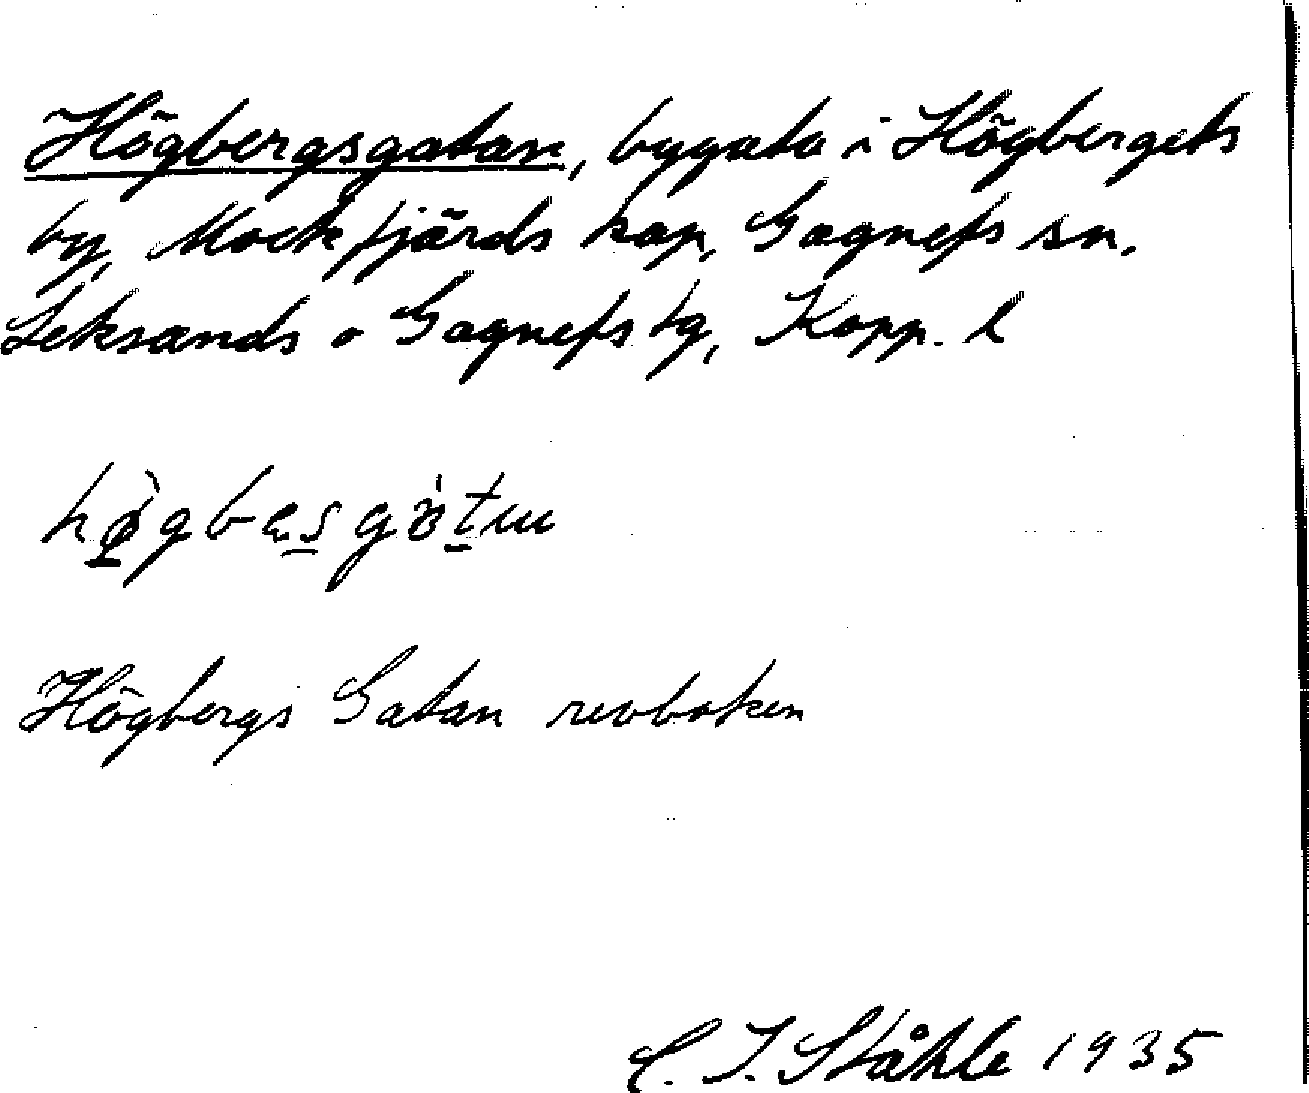 Högbergsgatan, bygata i Högbergets
by, Mockfjärds kap, Gagnefs sn.
Leksands o Gagnefs tg, Kopp. l
Högbergs Gatan revboken
C. I. Ståhle 1935